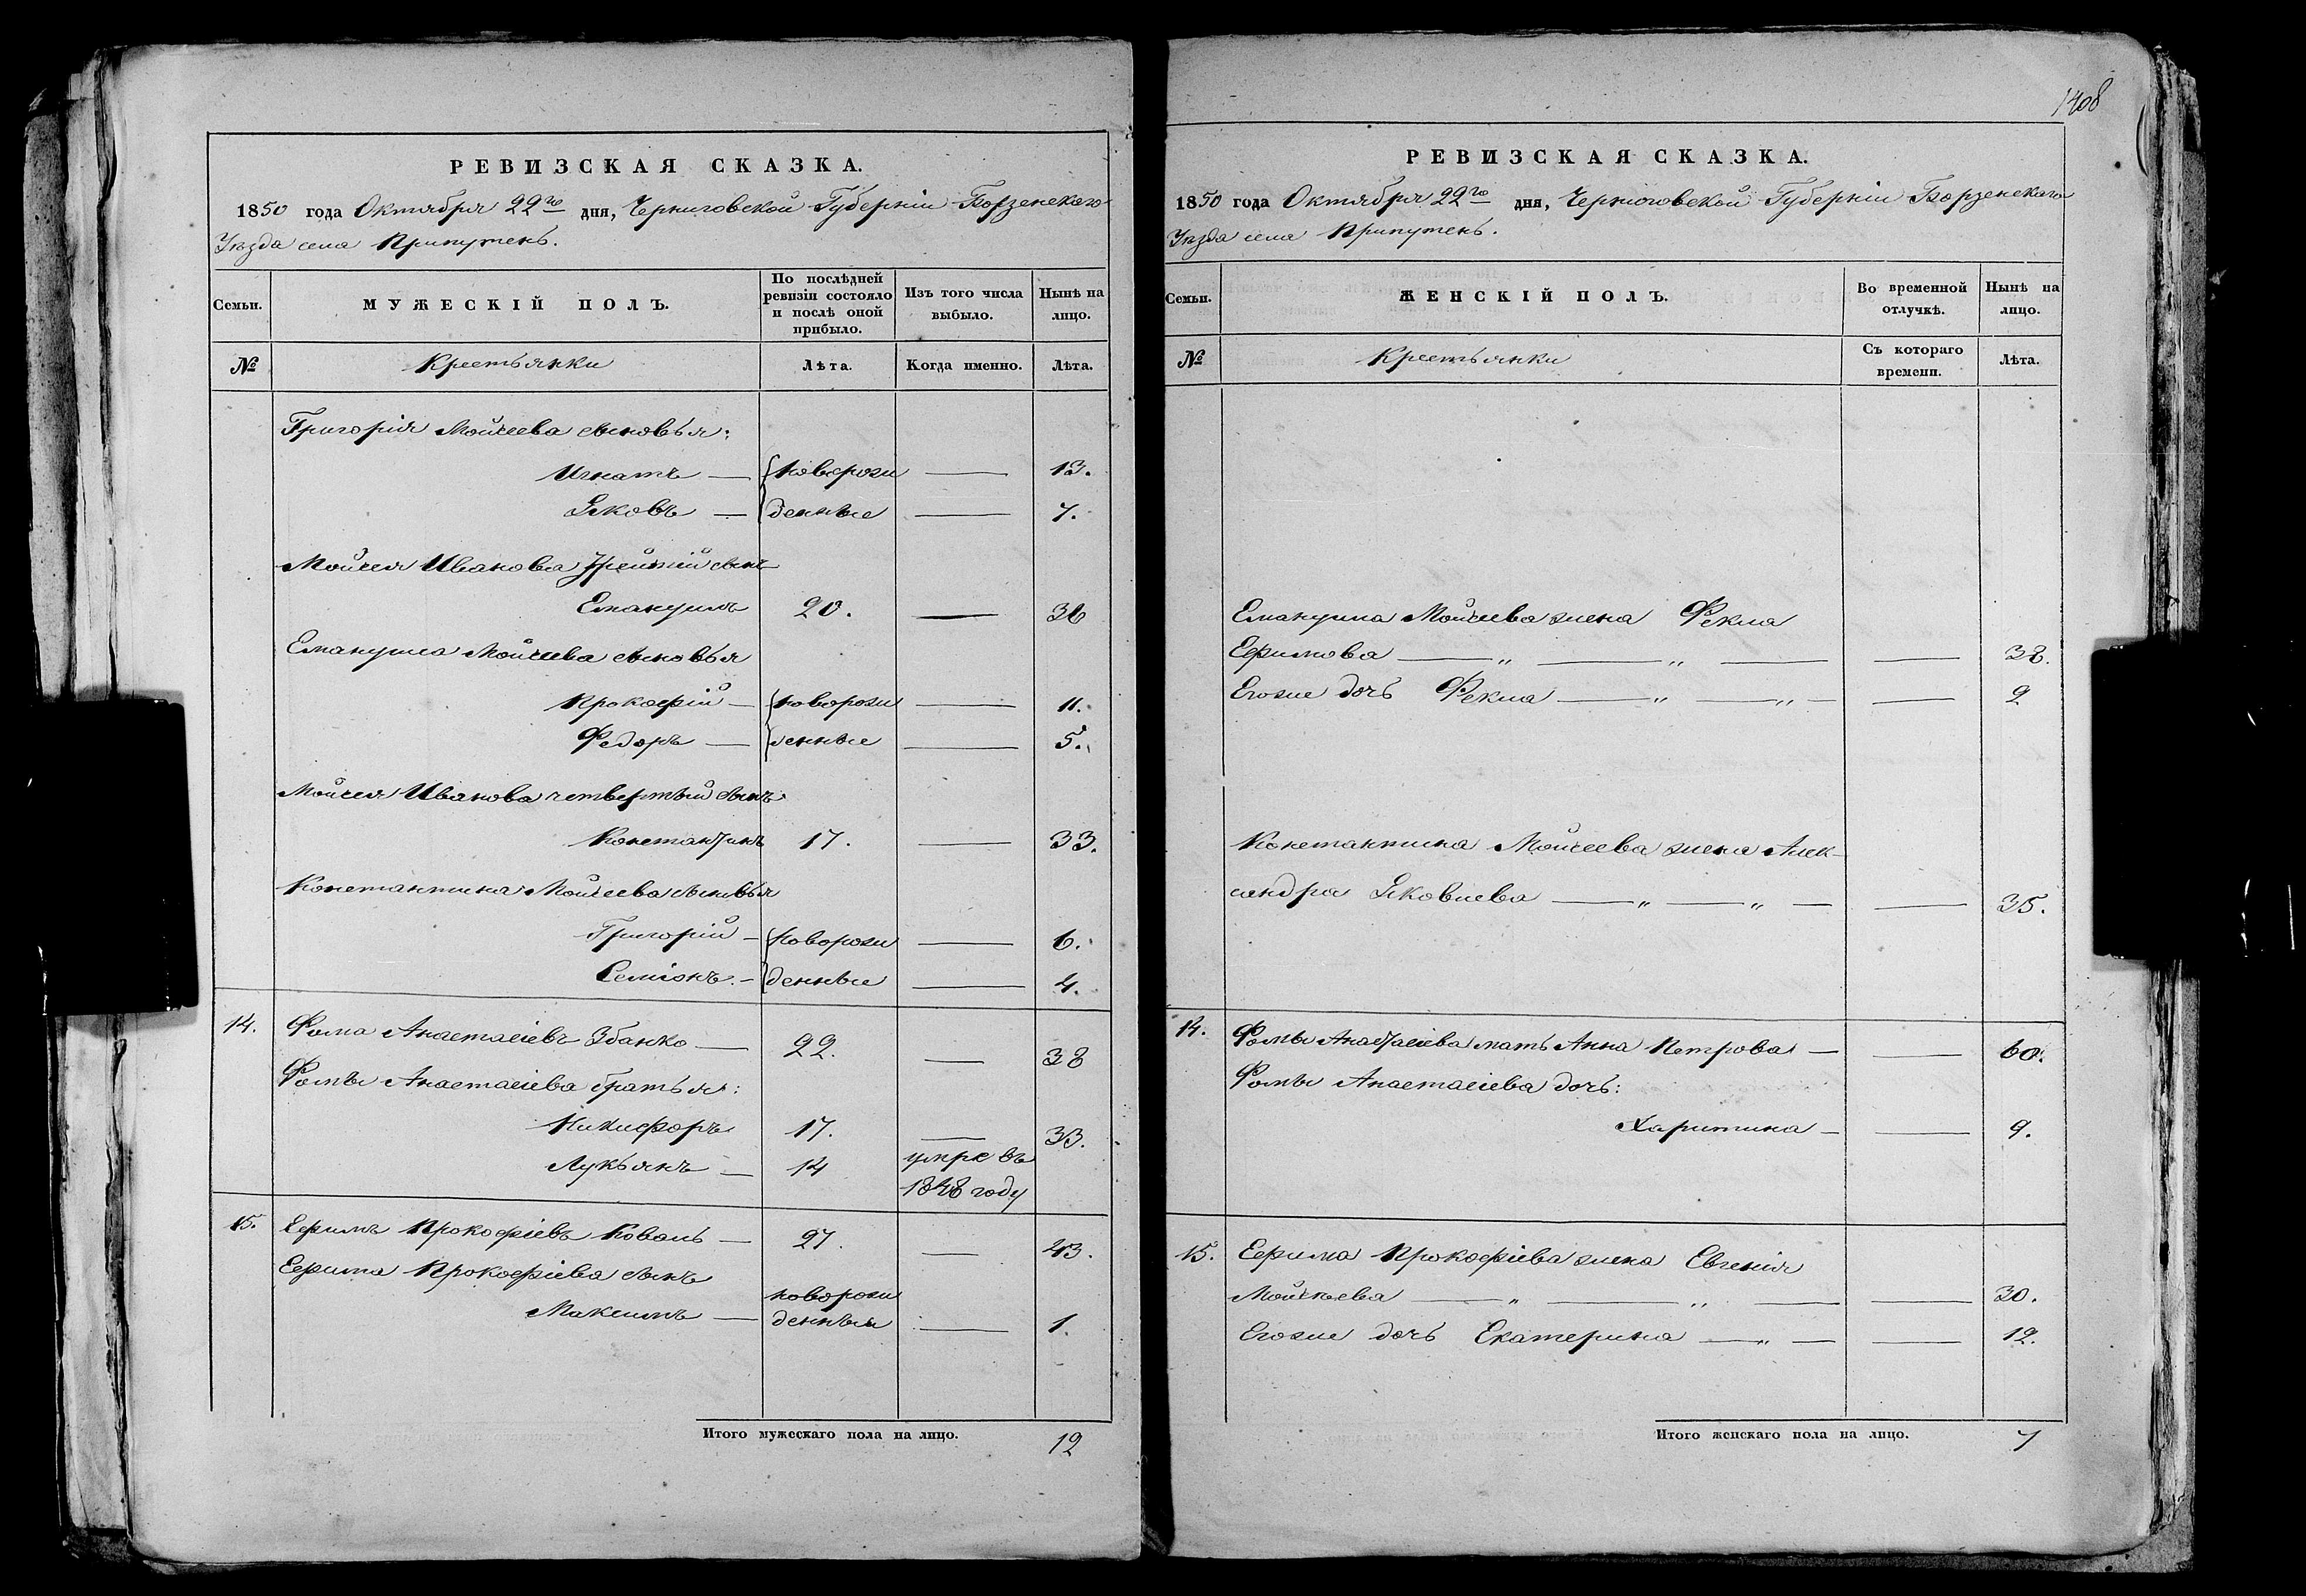 РЕВИЗСКАЯ СКАЗКА.
1850 года Октября 22го дня, Черниговской Губерніи Борзенскаго
Уѣзда села Припутень.
Семьи.
МУЖЕСКІЙ ПОЛЪ.
По послѣдней
ревизіи состояло
и послѣ оной
прибыло.
Изъ того числа
выбыло.
Нынѣ на
лицо.
№
Крестьянки
Лѣта.
Когда именно.
Лѣта.
Григорія Мойсеева сыновья:
Игнатъ — новорож — 13.
Яковъ — денные — 7.
Мойсея Иванова третій сынъ
Емануилъ 20. — 36
Емануила Мойсеева сыновья
Прокофій — новорож — 11.
Федоръ — денные — 5.
Мойсея Иванова четвертый сынъ
Константинъ 17. — 33.
Константина Мойсеева сыновья
Григорій — новорож — 6.
Семіонъ. — денные — 4.
14. Фома Анастасіевъ Збанко — 22. — 38
Фомы Анастасіева братья:
Никифоръ 17. — 33.
Лукьянъ — 14 умре въ
1848 году
15. Ефимъ Прокофіевъ Коваль — 27. — 43.
Ефима Прокофіева сынъ
новорож
Максимъ — денный — 1.
Итого мужескаго пола на лицо. 12
1408
РЕВИЗСКАЯ СКАЗКА.
1850 года Октября 22го дня, Черниговской Губерніи Борзенскаго
Уѣзда села Припутень.
Семьи.
ЖЕНСКІЙ ПОЛЪ.
Во временной
отлучкѣ.
Нынѣ на
лицо.
№
Крестьянки
Съ котораго
времени.
Лѣта.
Емануила Мойсеева жена Фекла
Ефимова — „ — „ — — 38.
Егоже дочь Фекла — „ — „ — — 9
Константина Мойсеева жена Алек-
сандра Яковлева — „ — „ — — 35.
14. Фомы Анастасіева мать Анна Петрова — — 60.
Фомы Анастасіева дочь:
Харитина — — 9.
15. Ефима Прокофіева жена Евгенія
Мойсеева — „ — „ — — 30.
Егоже дочь Екатерина — „ — — 12.
Итого женскаго пола на лицо. 7